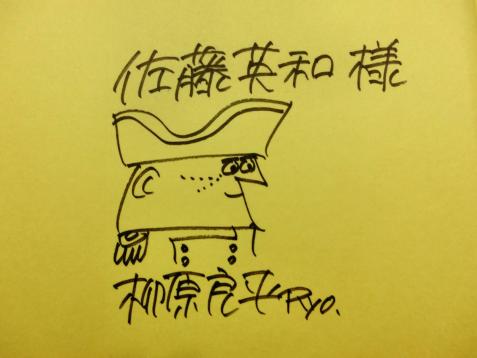 佐藤英和様
柳原良平 Ryo.